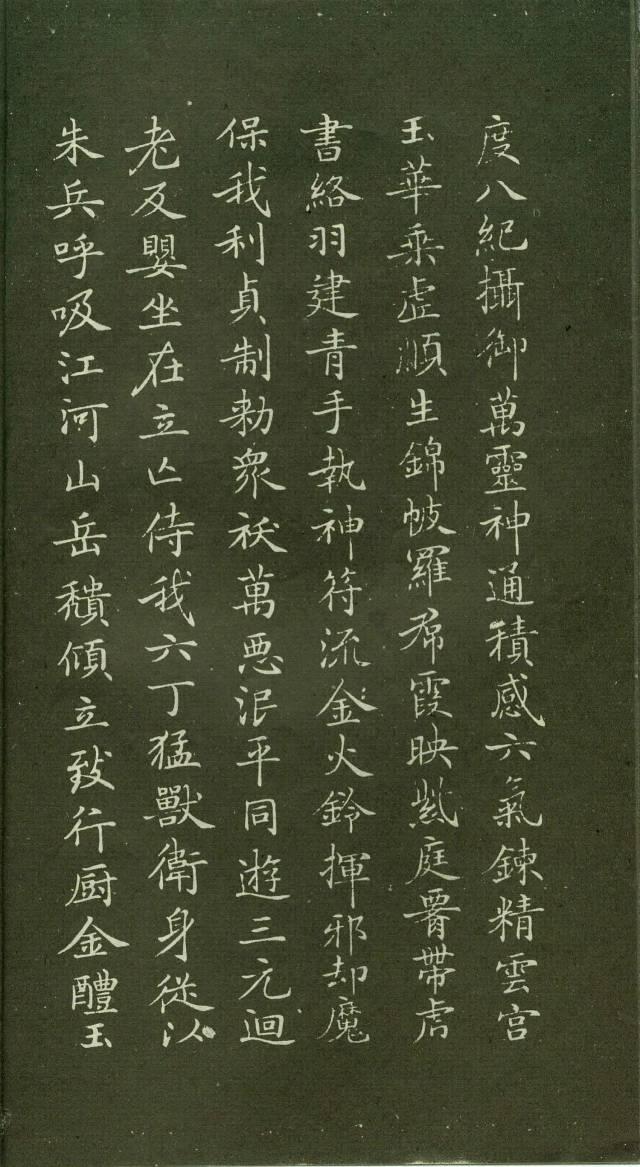 度八紀攝御萬靈神通積感六氣鍊精雲宮
玉華乘虛順生錦帔羅帬霞映紫庭腎帶虎
書絡羽建青手執神符流金火鈴揮邪却魔
保我利貞制勑眾祅萬惡泯平同遊三元迴
老反嬰坐在立亡侍我六丁猛獸衛身從以
朱兵呼吸江河山岳穨傾立致行厨金醴玉